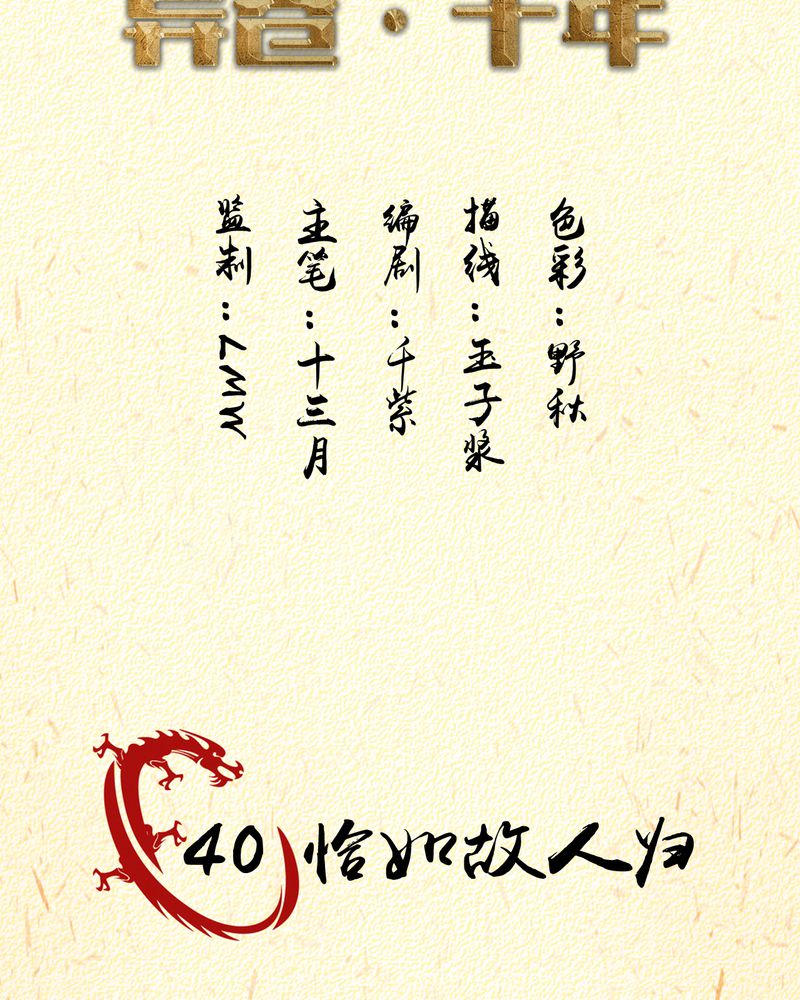 监制：MWL
主笔：十三月
编剧：千紫
描线：玉子浆
色彩：野秋
40 恰如故人归